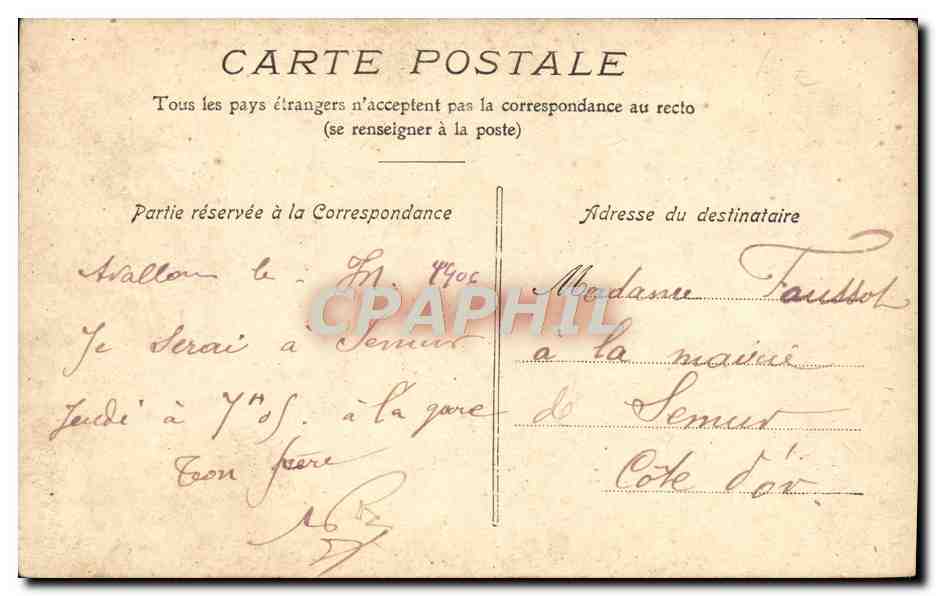 CARTE POSTALE
Tous les pays étrangers n'acceptent pas la correspondance au recto
(se renseigner à la poste)
Partie réservée à la Correspondance
Avallon le
Je serai à Semur
Jeudi à 7h05. à la gare
Ton frère
Adresse du destinataire
Madame Foussot
à la mairie
de Semur
Côte d'or
CPAPHIL